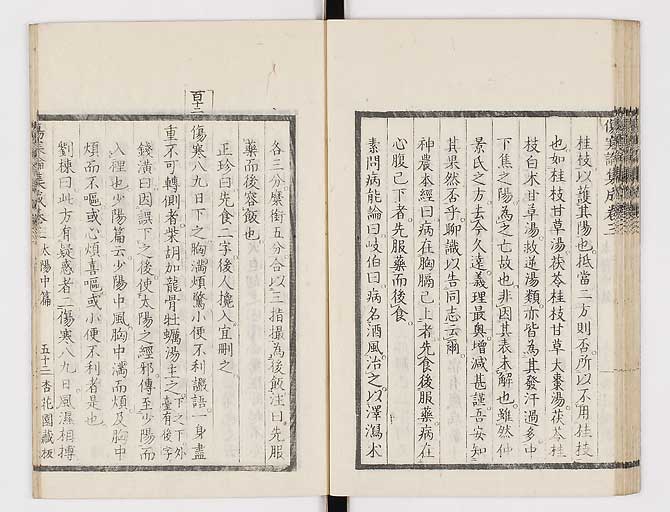 桂枝以護其陽也抵當二方則否所以不用桂枝
也如桂枝甘草湯茯苓桂枝甘草大棗湯茯苓桂
枝白朮甘草湯救逆湯類亦皆為其發汗過多中
下焦之陽為之亡故也非因其表未解也雖然仲
景氏之方去今久遠義理最奧增減甚謹吾安知
其果然否乎聊識以告同志云爾
神農本經曰病在胸膈已上者先食後服藥病在
心腹已下者先服藥而後食
素問病能論曰岐伯曰病名酒風治之以澤瀉朮
傷寒論集成卷三
各三分麋銜五分合以三指撮為後飯注曰先服
藥而後容飯也
正珍曰先食二字後人攙入宜刪之
百十二
傷寒八九日下之胸滿煩驚小便不利讝語一身盡
重不可轉側者柴胡加龍骨牡蠣湯主之下之下外臺有後字
錢潢曰因誤下之後使太陽之經邪傳至少陽而
入裡也少陽篇云少陽中風胸中滿而煩及胸中
煩而不嘔或心煩喜嘔或小便不利者是也
劉棟曰此方有疑惑者二傷寒八九日風濕相摶
傷寒論集成卷三 太陽中篇 五十三 杏花園藏板